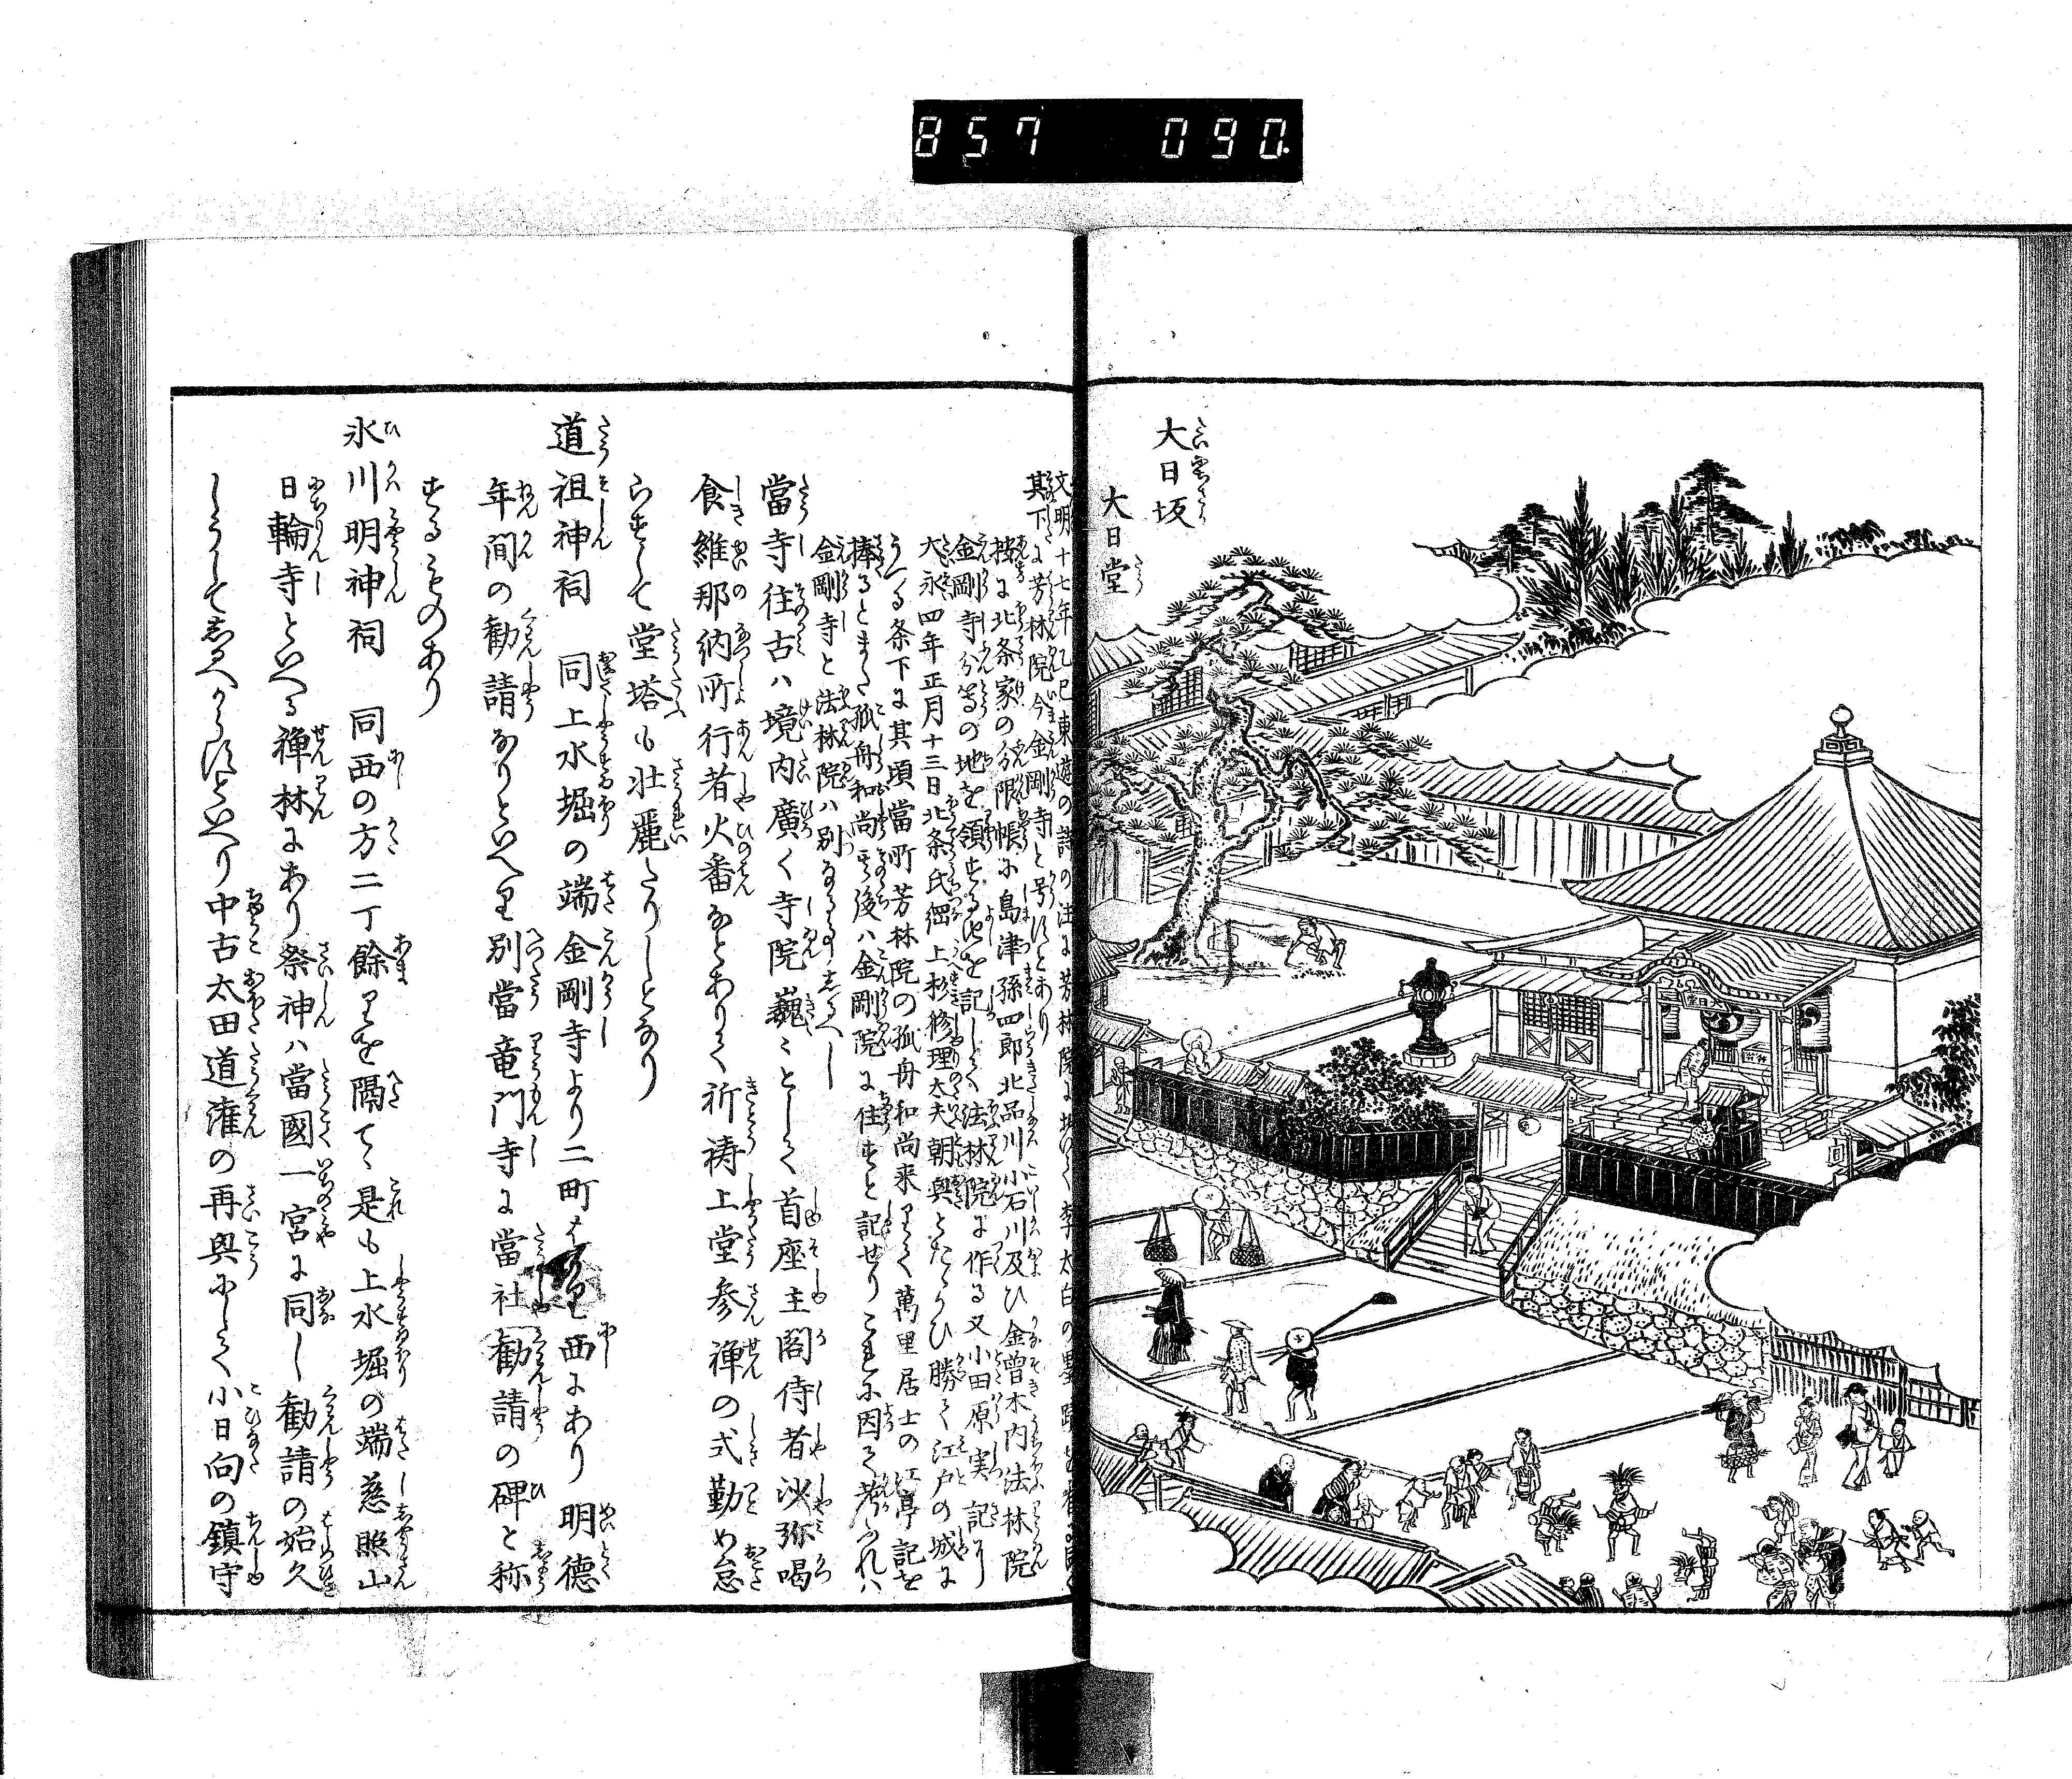 857 090.
大日坂
大日堂
文明十七年乙巳東遊の詩の注に芳林院に
其下に芳林院今金剛寺と号すとあり
按に北条家の分限帳に島津孫四郎北品川小石川及ひ金曽木内法林院
金剛寺分等の地を領する由を記して法林院に作る又小田原実記に
大永四年正月十三日北条氏綱上杉修理太夫朝興とたゝかひ勝て江戸の城に
うつる条下に其頃當所芳林院の孤舟和尚来りて萬里居士の江亭記を
捧るとまた孤舟和尚其後ハ金剛院に住すと記せりこれに因て考ふれハ
金剛寺と法林院ハ別なる事しるへし
當寺往古ハ境内廣く寺院巍〻として首座主閣侍者沙弥喝
食維那納所行者火番なとありて祈祷上堂参禅の式勤め怠
らすして堂塔も壮麗たりしとなり
道祖神祠　同上水堀の端金剛寺より二町 西にあり明徳
年間の勧請なりといへり別當竜門寺に當社勧請の碑と称
するものあり
氷川明神祠　同西の方二丁餘りを隔て是も上水堀の端慈照山
日輪寺といへる禅林にあり祭神ハ當國一宮に同し勧請の始久
しうして志るへからすといへり中古太田道潅の再興にして小日向の鎮守